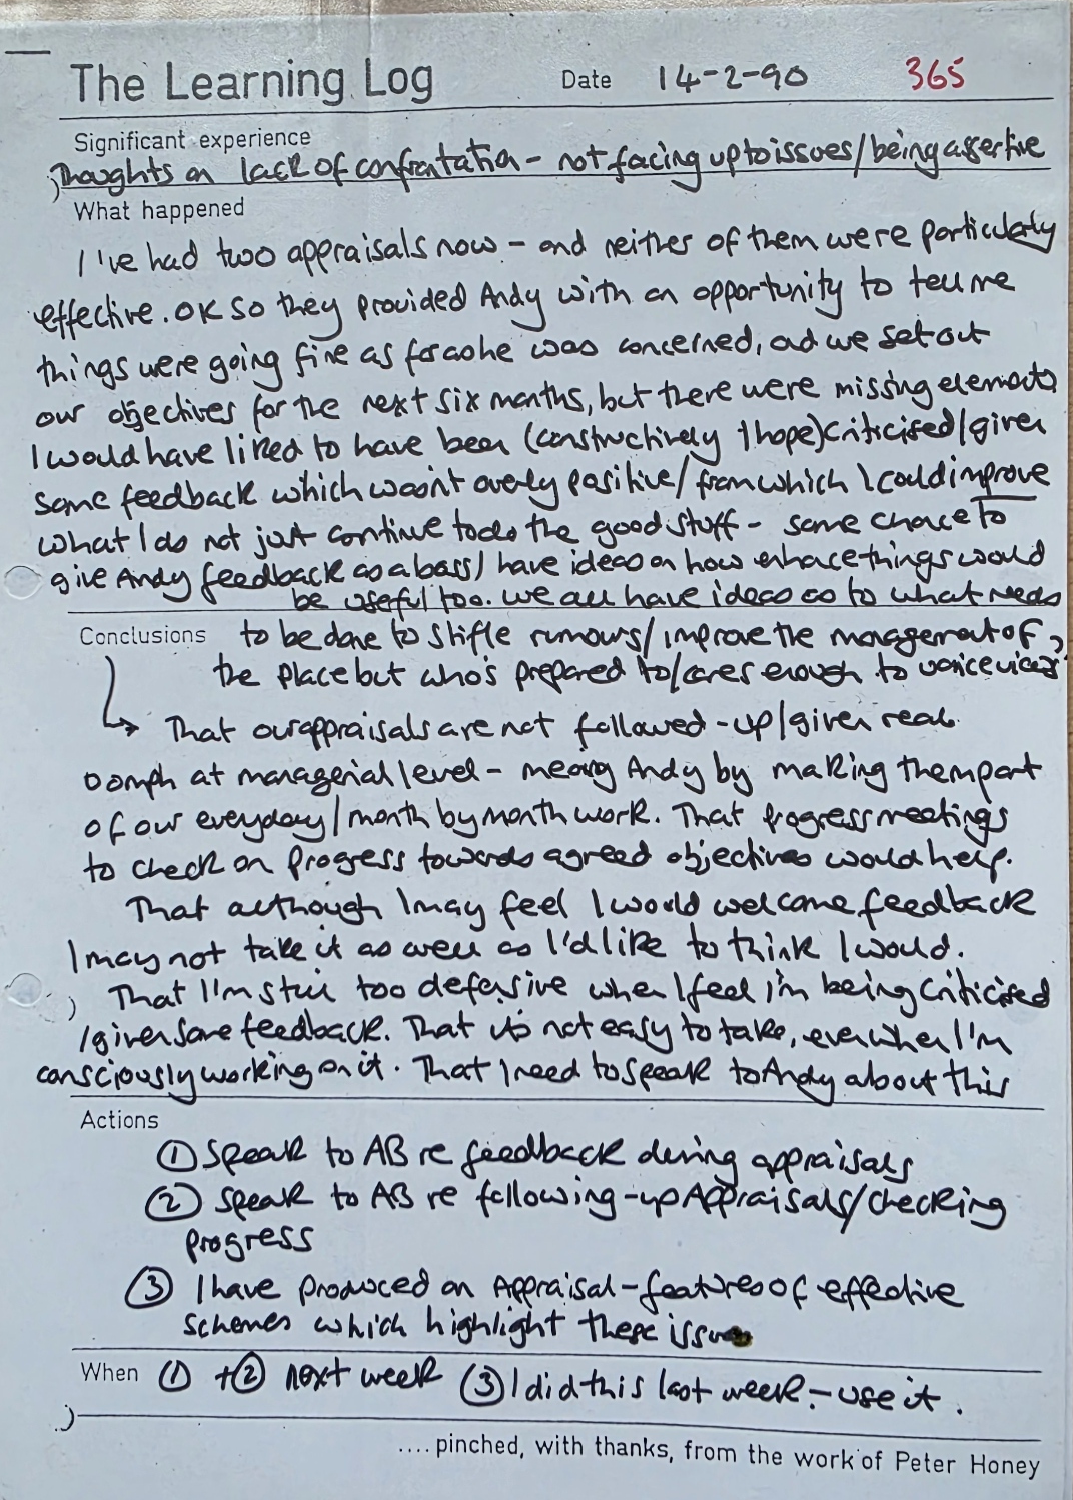 The Learning Log Date 14-2-90 365
Significant experience
Thoughts on lack of confrontation - not facing up to issues/being assertive
What happened
I've had two appraisals now - and neither of them were particularly
effective. OK so they provided Andy with an opportunity to tell me
things were going fine as far as he was concerned, and we set out
our objectives for the next six months, but there were missing elements
I would have liked to have been (constructively I hope) criticised/given
some feedback which wasn't overly positive/from which I could improve
what I do not just continue to do the good stuff - some chance to
give Andy feedback as a boss/I have ideas on how enhance things would
be useful too. We all have ideas as to what needs
Conclusions to be done to stifle rumours/improve the management of
the place but who's prepared to/cares enough to voice views
That our appraisals are not followed-up/given real
oomph at managerial level - meaning Andy by making them part
of our everyday/month by month work. That progress meetings
to check on progress towards agreed objectives would help.
That although I may feel I would welcome feedback
I may not take it as well as I'd like to think I would.
That I'm still too defensive when I feel I'm being criticised
/given some feedback. That it's not easy to take, even when I'm
consciously working on it. That I need to speak to Andy about this
Actions
① Speak to AB re feedback during appraisals
② Speak to AB re following-up Appraisals/checking
progress
③ I have produced an Appraisal-features of effective
schemes which highlight these issues
When ① + ② next week ③ I did this last week - use it.
.... pinched, with thanks, from the work of Peter Honey